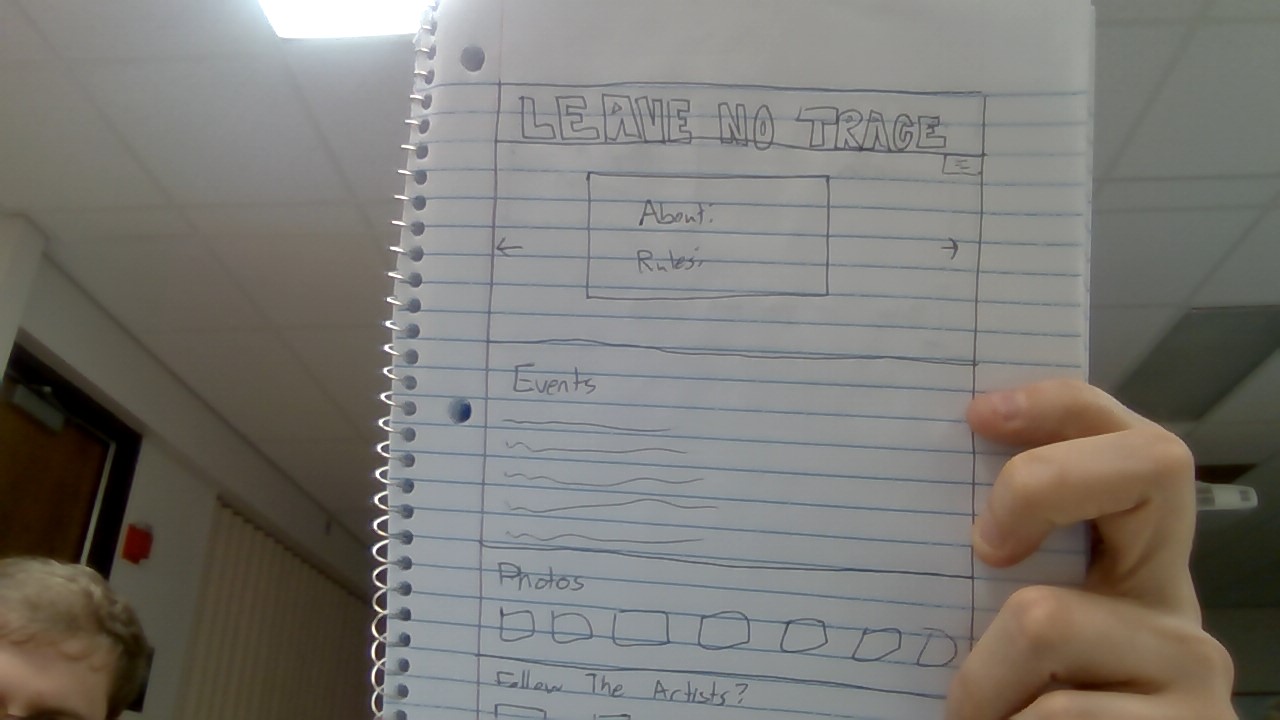 LEAVE NO TRACE
About:
Rules:
Events
Photos
Follow The Artists?